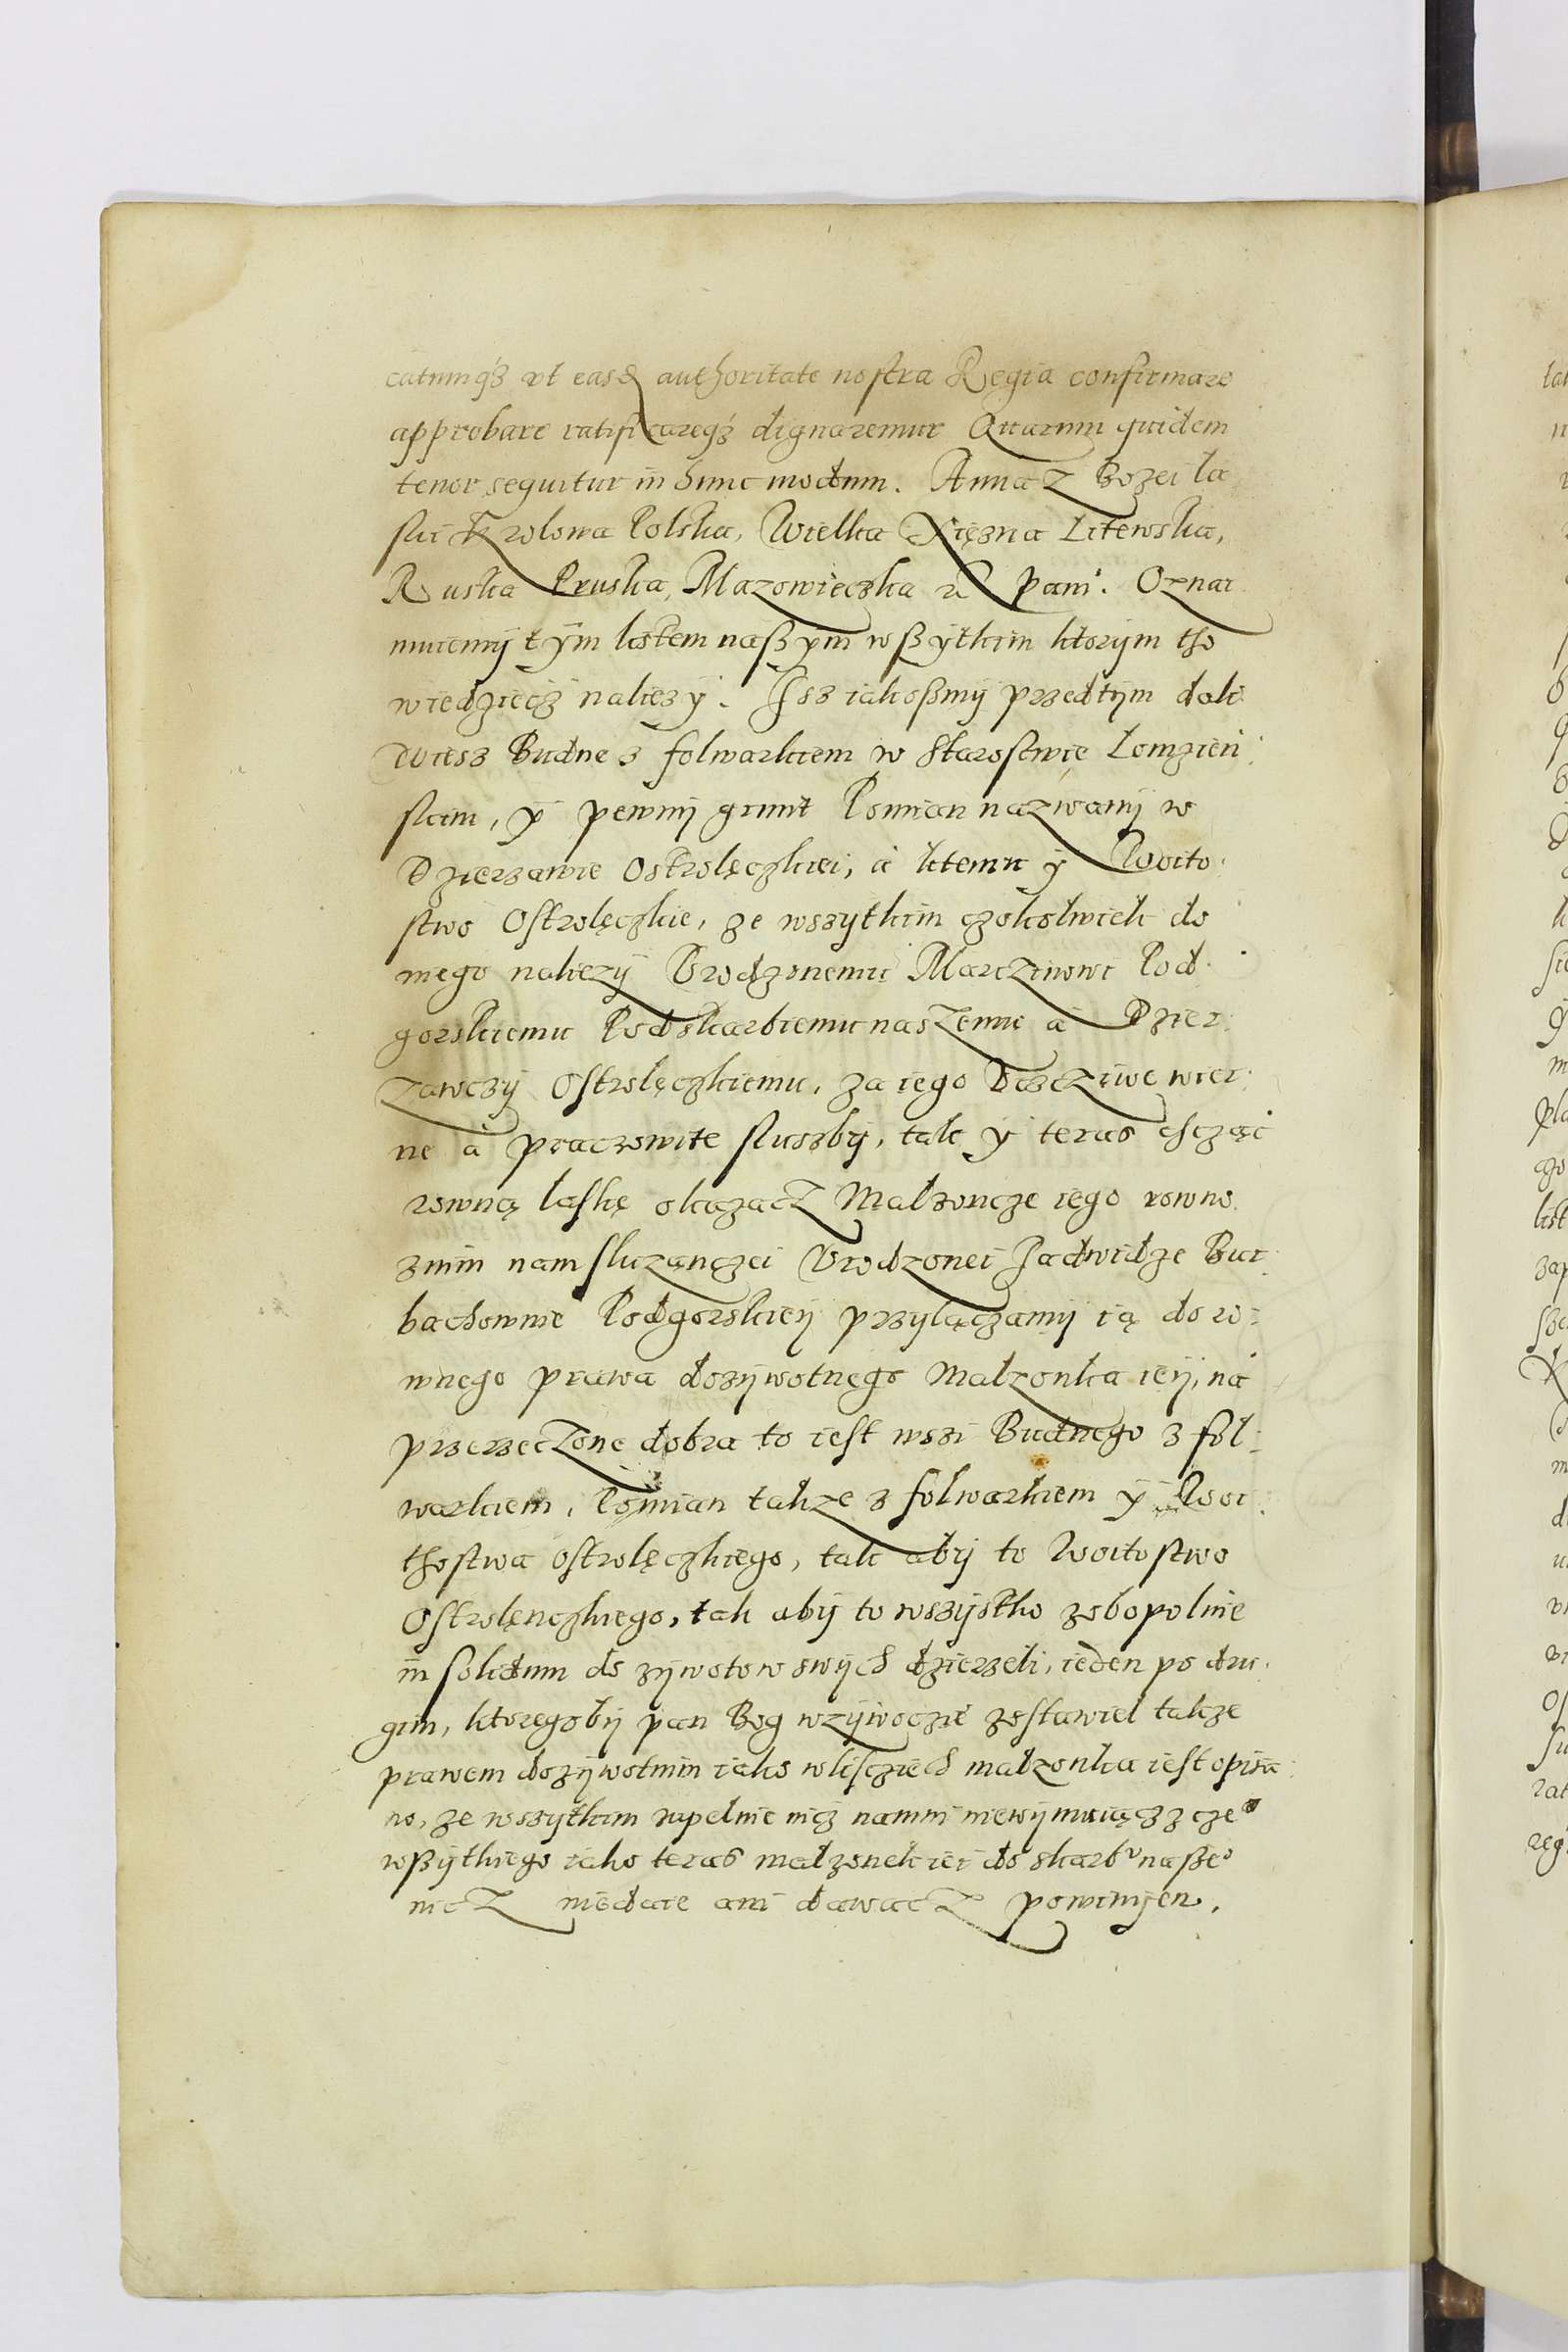 catumqȝ vt easdẽ authoritate nostra Regia confirmare
approbare ratificareqȝ dignaremur Quarum quidem
tenor sequitur in hunc modum. Anna z Bozei la
ski Krolowa Polska, Wielka Xięzna Litewska,
Ruska Pruska, Mazowieczka etc pani. Oznai
muiemÿ tÿm listem naßÿm wßÿtkim ktorÿm tho
wiedziecz nalezÿ. Isz iakoßmÿ przedtÿm dali
Wiesz Budne z folwarkiem w starostwie Lomzien
skim, ÿ pewnÿ grunt Pomian nazwanÿ w
Dzierzawie Ostrolęczkiei, a ktemu ÿ Woito
stwo Ostrolęczkie, ze wszÿtkim czokolwiek do
niego nalezÿ Vrodzonemu Marczinowi Pod
gorskiemu Podskarbiemu naszemu a Dzier
zawczÿ Ostrolęczkiemu, za iego Vczcziwe wier
ne a praczowite sluszbÿ, tak ÿ teras chcząc
rowną laskę okazacz Malzoncze iego rowno
znim nam sluzączei Vrodzonei Jadwidze Bur
bachownie Podgorskieÿ przÿlączamÿ ią do ro
wnego prawa dozÿwotnego Malzonka ieÿ, na
przerzeczone dobra to iest wszi Budnego z fol
warkiem, Pomian takze z folwarkiem ÿ Woi
thostwa ostrolęczkiego, tak abÿ to Woitostwo
Ostrolęnczkiego, tak abÿ to wszÿstko zobopolnie
in solidum do zÿwotow swÿch dzierzeli, ieden po dru
gim, ktoregobÿ pan Bog wzÿwoczie zostawiel takze
prawem dozÿwotnim iako wliscziech malzonka iest opisa
no, ze wszÿtkim zupelnie nicz nammi niewÿmuiącz z cze⁰
wßÿtkiego iako teras malzonek iei do skarbᵛ naße⁰
nicz niedaie ani dawacz powinien.